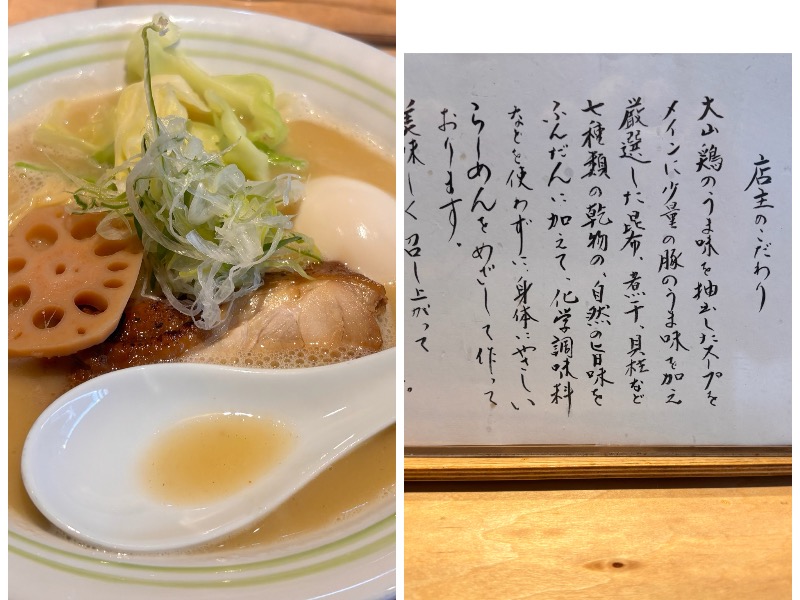 店主のこだわり
大山鶏のうま味を抽出したスープを
メインに少量の豚のうま味を加え
厳選した昆布、煮干、貝柱など
七種類の乾物の、自然の旨味を
ふんだんに加えて、化学調味料
などを使わずに、身体にやさしい
らーめんをめざして作って
おります。
美味しく召し上がって